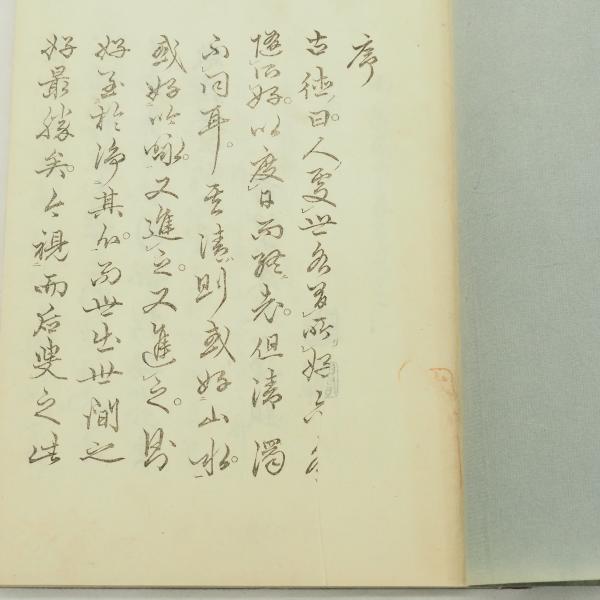 序
古徳曰。人処世各有所好。亦各
随所好。以度日而終老。但清濁
不同耳。至清則或好山水。
或好吟咏。又進之。又進之。則
好至於浄其心。而世出世間之
好最勝矣。今視雨后叟之此